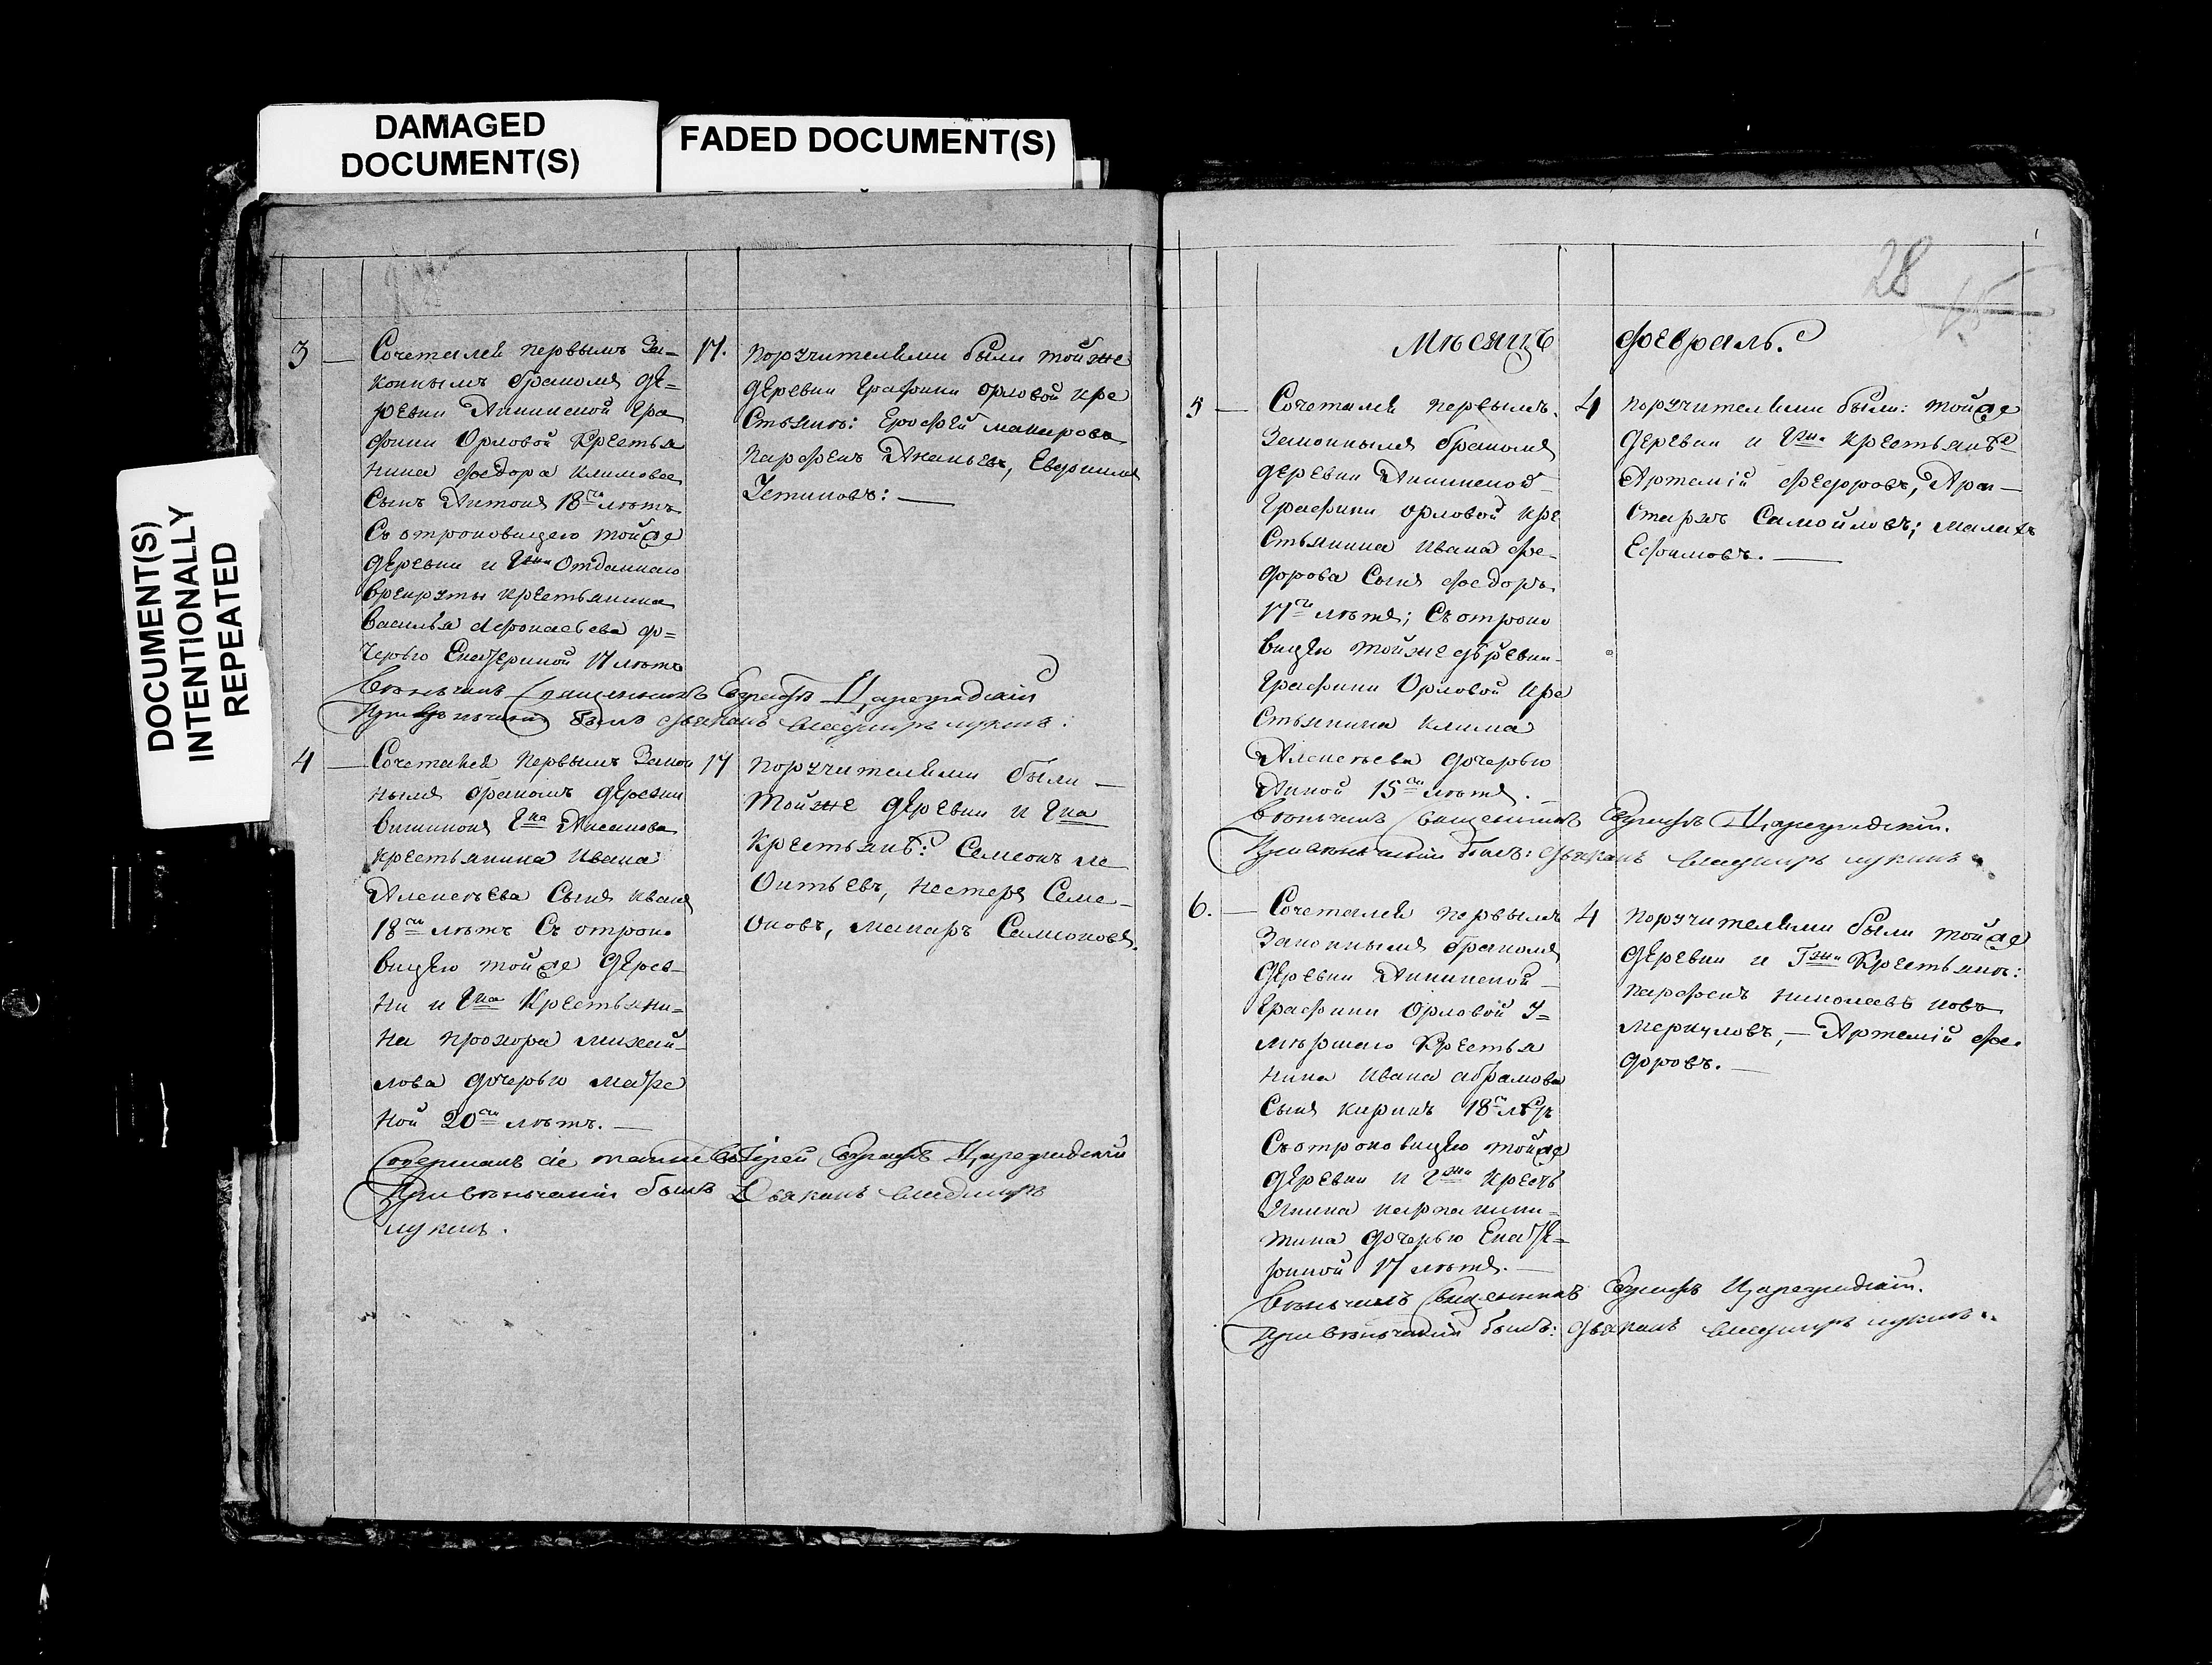 DAMAGED
DOCUMENT(S)
FADED DOCUMENT(S)
DOCUMENT(S)
INTENTIONALLY
REPEATED
3 — Сочетался первымъ За-
коннымъ бракомъ де=
ревни Аннинской Гра
фини Орловой Крестья
нина Федора Климова
Сынъ Антонъ 18ти лѣтъ
Съ отроковицею тойже
деревни и Гжи Отданнаго
врекруты крестьянина
Василья Афонасьева до=
черью Екатериной 17 лѣтъ
17.
Поручителями были тойже
деревни Графини Орловой кре
стьянъ: Ерофей Макаровъ
Парфенъ Ананьевъ,
Устиновъ: —
Вѣнчалъ Священникъ Цареградскій
При вѣнчаніи былъ дьяконъ Владимиръ Лукинъ:
4 — Сочетался первымъ Закон
нымъ бракомъ деревни
Гна
крестьянина Ивана
Алексѣева Сынъ Иванъ
18ти лѣтъ Съ отроко
вицею тойже дерев-
ни и Гна Крестьяни=
на Прохора Михай-
лова дочерью Матре
ной 20ти лѣтъ. —
17
Поручителями были —
тойже деревни и Гна
Крестьянѣ: Семенъ Ле
онтьевъ, Нестеръ Семе-
оновъ, Макаръ Самсоновъ.
Совершалъ сіе Іерей Цареградскій
При вѣнчаніи былъ Дьяконъ Владимиръ
Лукинъ.
28
15
Мѣсяцъ Февраль.
5 — Сочетался первымъ
Законнымъ бракомъ
деревни Аннинской
Графини Орловой кре
стьянина Ивана Фе-
дорова Сынъ Федоръ
17ти лѣтъ; Съ отроко
вицею тойже деревни
Графини Орловой Кре
стьянина Клима
Алексѣева дочерью
Анной 15ти лѣтъ. —
4
Поручителями были: тойже
деревни и Гжи крестьянѣ
Артемій Федоровъ, Ари-
стархъ Самойловъ; Малахъ
Ефимовъ. —
Вѣнчалъ Священникъ Цареградскій.
При вѣнчаніи былъ: дьяконъ Владимиръ Лукинъ.
6. — Сочетался первымъ
Законнымъ бракомъ
деревни Аннинской
Графини Орловой У=
мѣршаго Крестья
нина Ивана Абрамова
Сынъ 18ти лѣтъ
Съ отроковицею тойже
деревни и Гжи кресть
янина Карпа Ники-
тина дочерью Екате=
риной 17 лѣтъ. —
4
Поручителями были тойже
деревни и Гжи Крестьянѣ:
Парфенъ Николаевъ
Меркуловъ, — Артемій Фе-
доровъ. —
Вѣнчалъ Священникъ Цареградскій.
При вѣнчаніи былъ: дьяконъ Владимиръ Лукинъ.